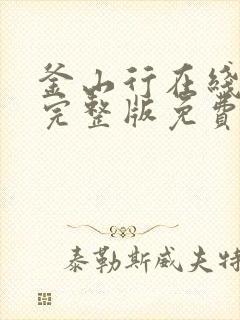 釜山行在线
完整版免費
泰勒斯威夫特